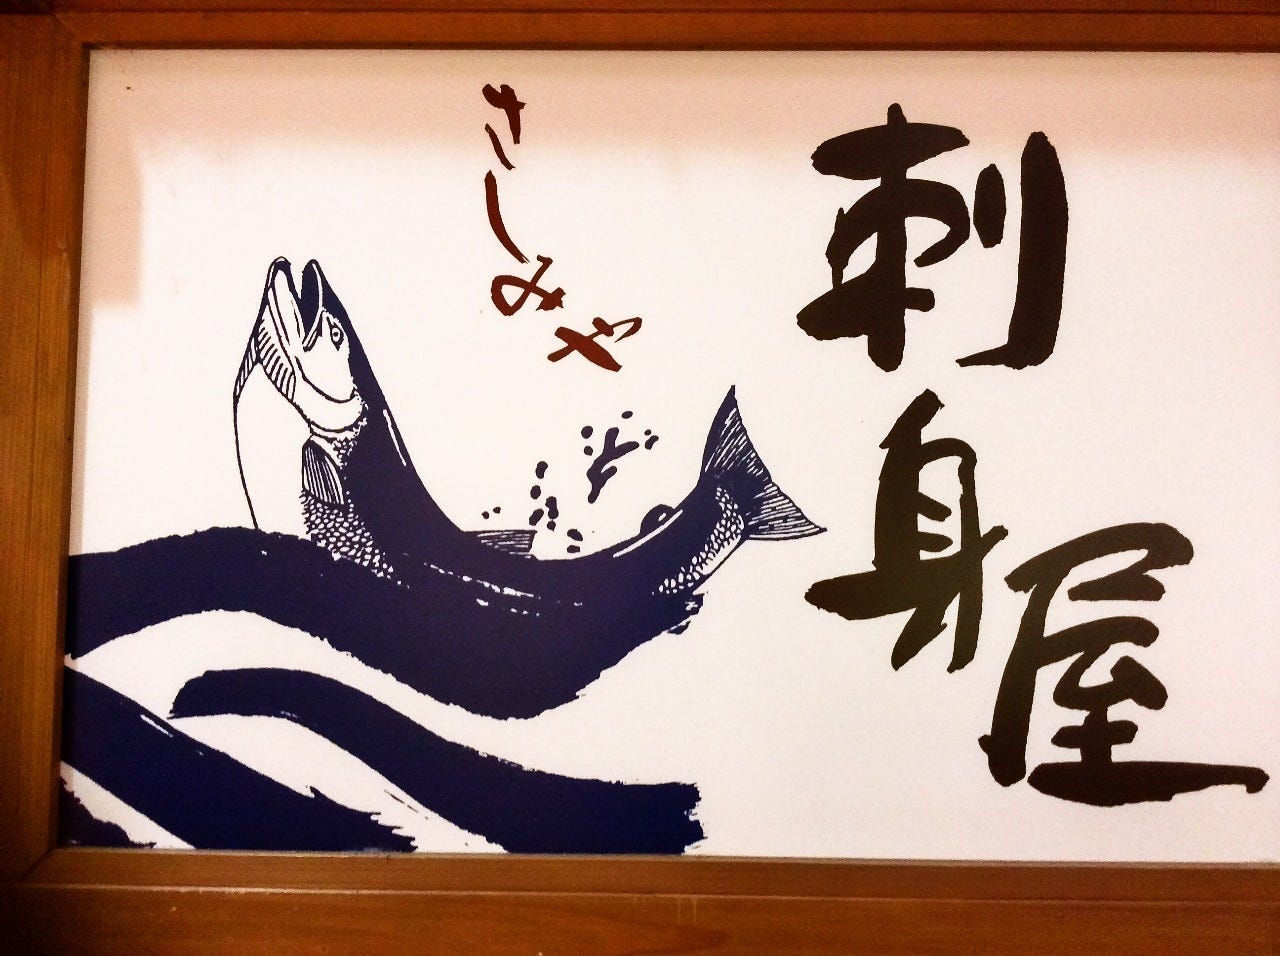 刺身屋
さしみや